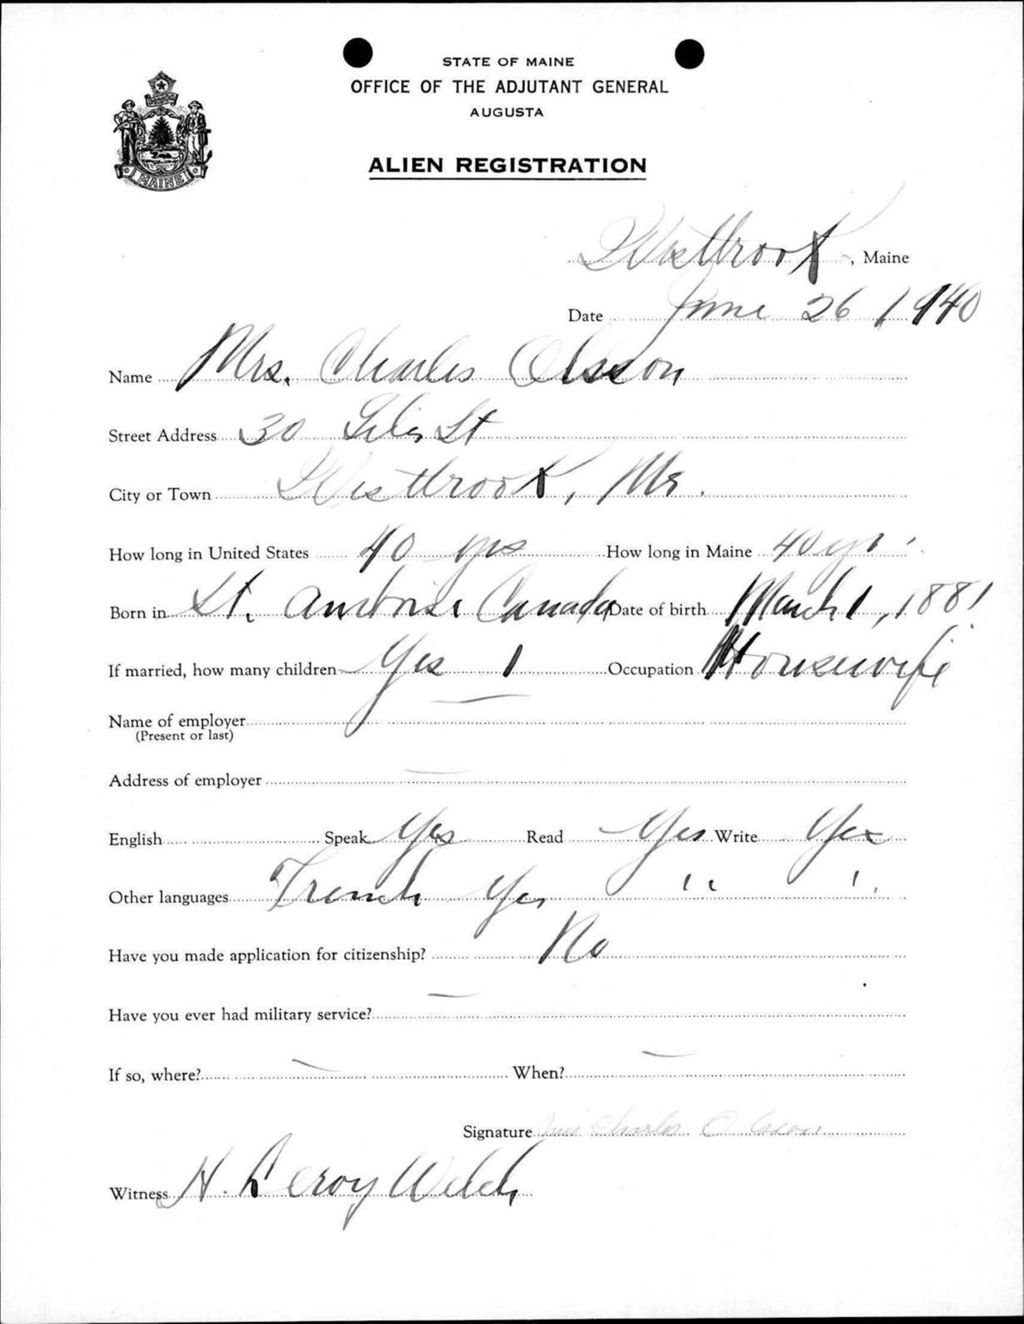 STATE OF MAINE
OFFICE OF THE ADJUTANT GENERAL
AUGUSTA
MAINE
ALIEN REGISTRATION
Westbrook, Maine
Date June 26, 1940
Name Mrs. Charles Olsson
Street Address 30 St
City or Town Westbrook, Me.
How long in United States 40 yrs How long in Maine 40 yr.
Born in St. Ambrise Canada Date of birth March 1, 1881
If married, how many children Yes 1 Occupation Housewife
Name of employer —
(Present or last)
Address of employer —
English Speak Yes Read Yes Write Yes
Other languages French Yes " "
Have you made application for citizenship? No
Have you ever had military service? —
If so, where? — When? —
Signature Mrs Charles Olsson
Witness H. Leroy Welch